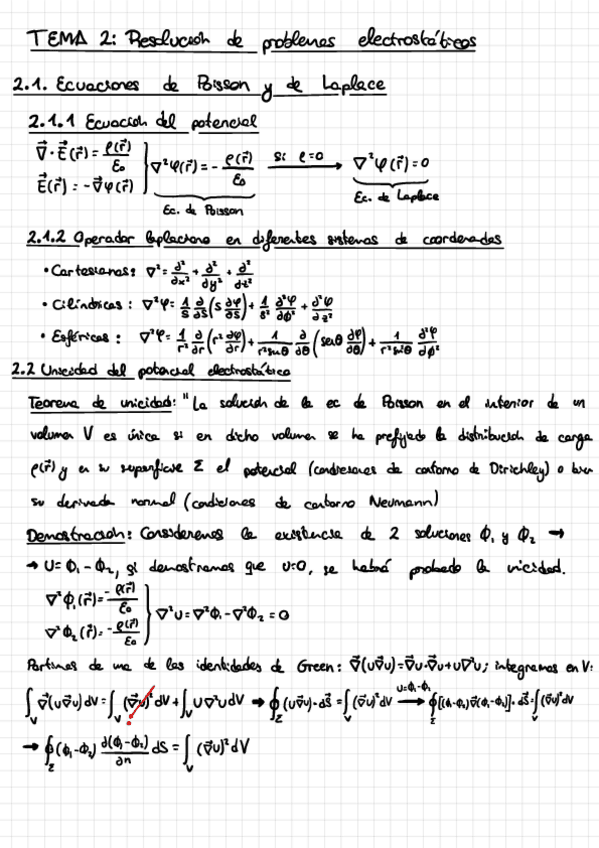 TEMA 2: Resolución de problemas electrostáticos
2.1. Ecuaciones de Poisson y de Laplace
2.1.1 Ecuación del potencial
∇⃗·E⃗(r⃗) = ρ(r⃗)/ε₀
E⃗(r⃗) = -∇⃗φ(r⃗) } ∇²φ(r⃗) = - ρ(r⃗)/ε₀ si ρ=0 → ∇²φ(r⃗) = 0
Ec. de Poisson Ec. de Laplace
2.1.2 Operador laplaciano en diferentes sistemas de coordenadas
• Cartesianas: ∇² = ∂²/∂x² + ∂²/∂y² + ∂²/∂z²
• Cilíndricas: ∇²φ = 1/s ∂/∂s (s ∂φ/∂s) + 1/s² ∂²φ/∂ϕ² + ∂²φ/∂z²
• Esféricas: ∇²φ = 1/r² ∂/∂r (r² ∂φ/∂r) + 1/(r² senθ) ∂/∂θ (senθ ∂φ/∂θ) + 1/(r² sin²θ) ∂²φ/∂ϕ²
2.2 Unicidad del potencial electrostático
Teorema de unicidad: "La solución de la ec de Poisson en el interior de un
volumen V es única si en dicho volumen se ha prefijado la distribución de carga
ρ(r⃗) y en su superficie Σ el potencial (condiciones de contorno de Dirichley) o bien
su derivada normal (condiciones de contorno Neumann)
Demostración: Consideremos la existencia de 2 soluciones ϕ₁ y ϕ₂ →
→ U = ϕ₁ - ϕ₂, si demostramos que U=0, se habrá probado la unicidad.
∇²ϕ₁(r⃗) = -ρ(r⃗)/ε₀
∇²ϕ₂(r⃗) = -ρ(r⃗)/ε₀ } ∇²U = ∇²ϕ₁ - ∇²ϕ₂ = 0
Partimos de una de las identidades de Green: ∇⃗(u∇⃗u) = ∇⃗u·∇⃗u + u∇²u; integramos en V:
∫_V ∇⃗(u∇⃗u) dV = ∫_V (∇⃗u)² dV + ∫_V U∇²u dV → ∮_Σ (u∇⃗u)·dS⃗ = ∫_V (∇⃗u)² dV U=ϕ₁-ϕ₂ → ∮_Σ [(ϕ₁-ϕ₂)∇⃗(ϕ₁-ϕ₂)]·dS⃗ = ∫_V (∇⃗u)² dV
→ ∮_Σ (ϕ₁-ϕ₂) ∂(ϕ₁-ϕ₂)/∂n dS = ∫_V (∇⃗u)² dV